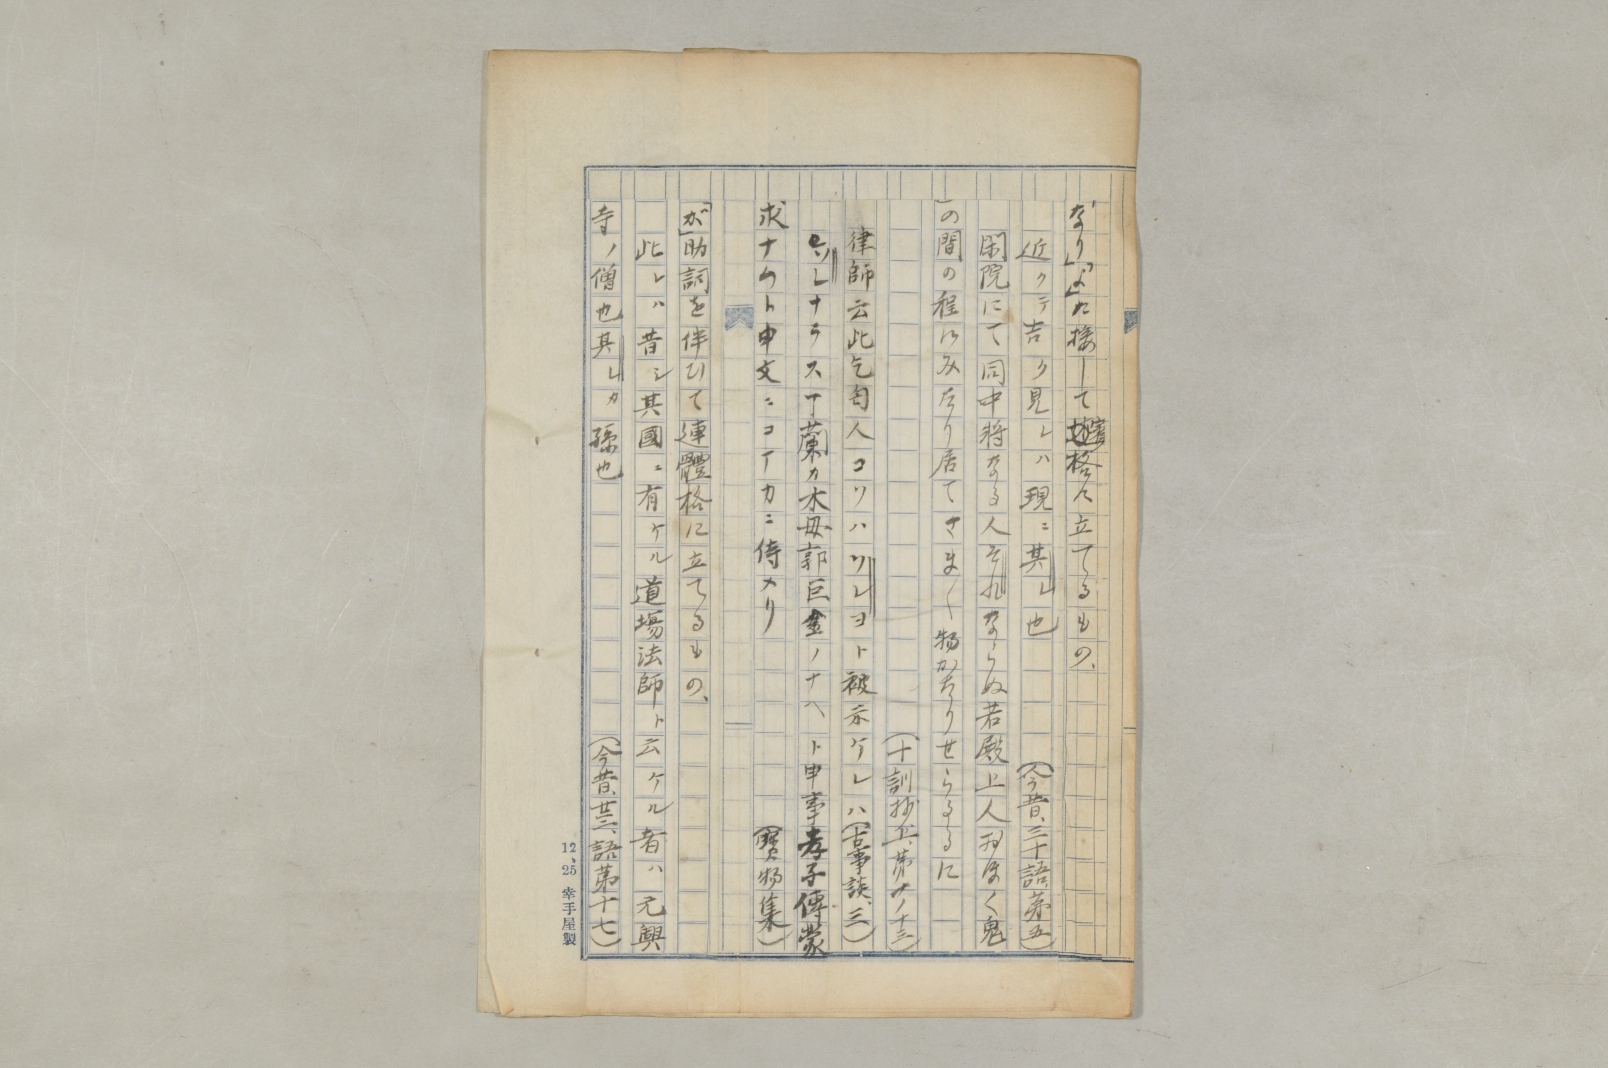 なり」「よ」に接して賓格に立てるもの、
近クテ吉ク見レハ現ニ其レ也 (今昔、三十語、第五)
閑院にて同中将なる人それならぬ若殿上人おほく鬼
の間の程にみだり居てさま〲物がたりせらるるに
(十訓抄上、第一ノ十三)
律師云此乞匄人コソハソレヨト被示ケレハ(古事談、三)
ソレナラス丁蘭カ木母郭巨金ノナヘト申事孝子傳蒙
求ナムト申文ニコマカニ侍メリ (寶物集)
「が」助詞を伴ひて連體格に立てるもの、
此レハ昔シ其國ニ有ケル道場法師ト云ケル者ハ元興
寺ノ僧也其レカ孫也 (今昔、廿三、語第十七)
12、25 幸手屋製